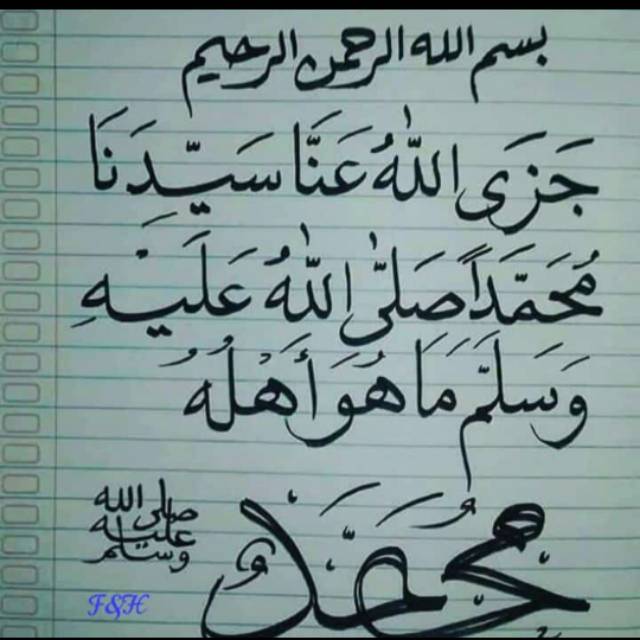 بسم الله الرحمن الرحيم
جَزَى اللّٰهُ عَنَّا سَيِّدَنَا
مُحَمَّدًا صَلَّى اللّٰهُ عَلَيْهِ
وَسَلَّمَ مَا هُوَ أَهْلُهُ
صلى الله
عليه
وسلم
محمد
F&H